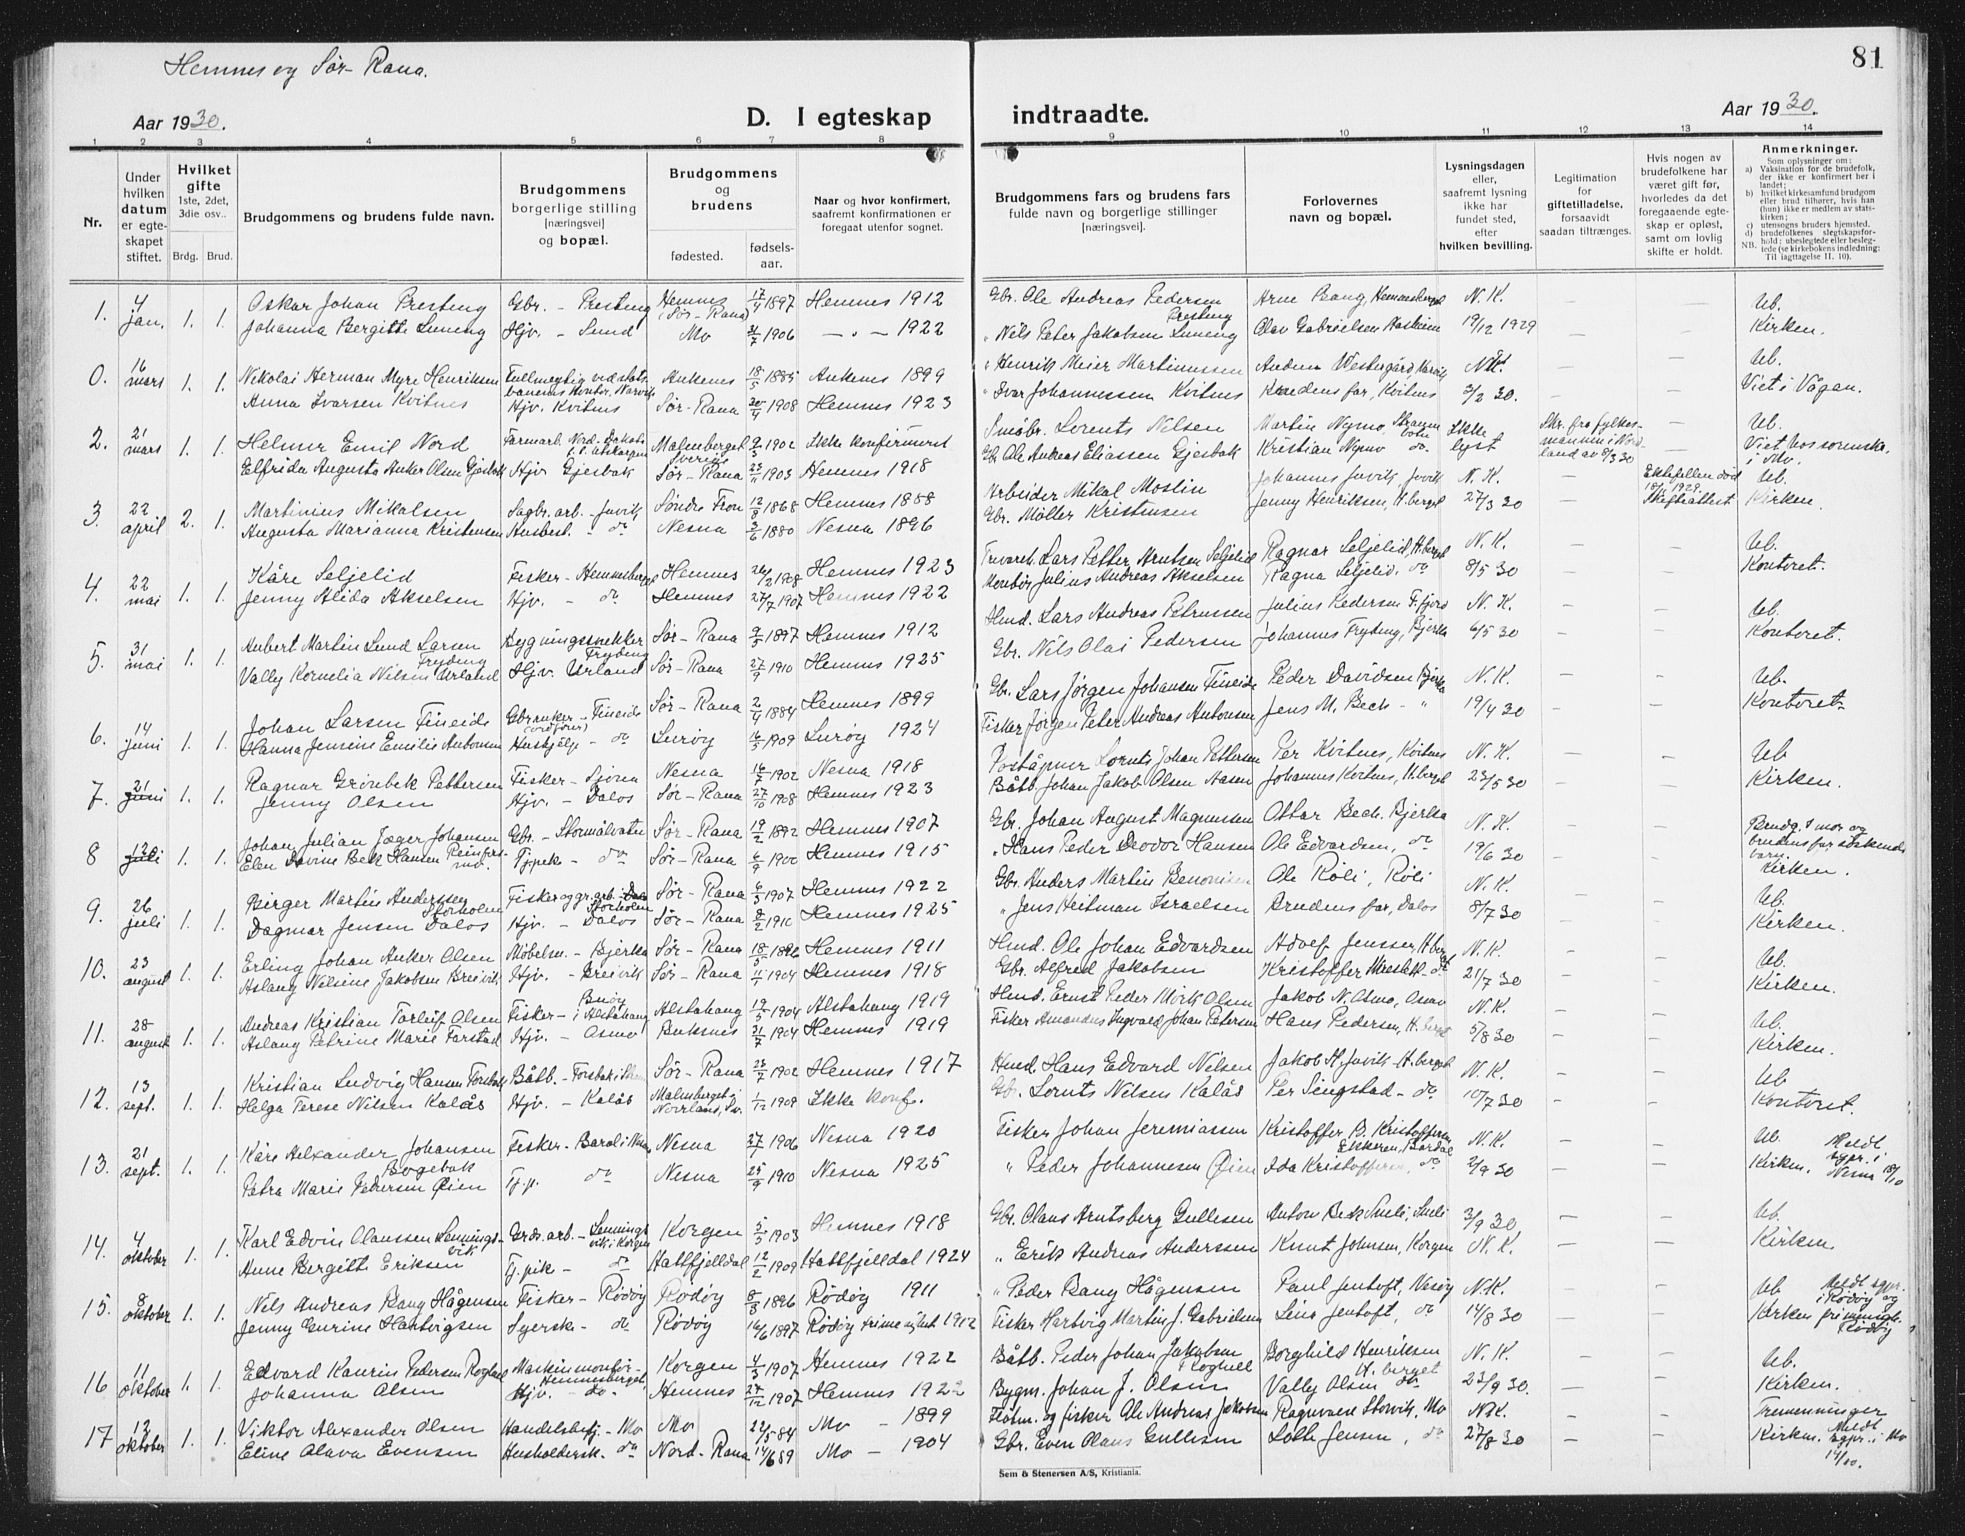 Hemnes og Sør-Rana.
81
Aar 1930.
D. I egteskap
indtraadte.
Aar 1930.
1 2 3 4 5 6 7 8 9 10 11 12 13 14
Nr.
Under hvilken datum er egteskapet stiftet.
Hvilket gifte
1ste, 2det, 3die osv..
Brdg. Brud.
Brudgommens og brudens fulde navn.
Brudgommens borgerlige stilling [næringsvei] og bopæl.
Brudgommens og brudens
fødested.
fødsels-aar.
Naar og hvor konfirmert, saafremt konfirmationen er foregaat utenfor sognet.
Brudgommens fars og brudens fars fulde navn og borgerlige stillinger [næringsvei].
Forlovernes navn og bopæl.
Lysningsdagen eller, saafremt lysning ikke har fundet sted, efter hvilken bevilling.
Legitimation for giftetilladelse, forsaavidt saadan tiltrænges.
Hvis nogen av brudefolkene har været gift før, hvorledes da det foregaaende egteskap er opløst, samt om lovlig skifte er holdt.
Anmerkninger.
Som oplysninger om:
a) Vaksination for de brudefolk, der ikke er konfirmert her i landet;
b) hvilket kirkesamfund brudgom eller brud tilhører, hvis han (hun) ikke er medlem av statskirken;
c) utensogns bruders hjemsted.
d) brudefolkenes slegtskapsforhold: ubeslegtede eller beslegtede (se kirkebokens indledning: Til iagttagelse II. 10).
NB.
1. 4 jan. 1. 1. Oskar Johan Presteng Gbr. - Presteng Hemnes (Sør-Rana) 17/4 1897 Hemnes 1912 Gbr. Ole Andreas Pedersen Presteng N. K. Ub.
Mo 1906 - " - 1922 " Nils Peter Jakobsen 19/12 1929 Kirken.
0. 16 mars 1. 1. Nikolai Herman Myre Henriksen Ankenes 18/5 1885 Ankenes 1899 " Henrik Meier Martinussen N.K. Ub.
Anna Ivarsen Kvitnes Hjv. Kvitnes Sør-Rana 20/4 1908 Hemnes 1923 " Ivar Johannessen Kvitnes Brudens far, Kvitnes 3/2 30. Viet i Vågan.
2. 21 mars 1. 1. Helmer Emil Nord Malmberget Sverige 1902 Ikke konfirmert Småbr. Lorents Nilsen Martin Nymo, Ikke Skr. fra fylkesmannen i Nordland av 8/3 30 Ub.
Elfrida Augusta Anker Olsen Gjesbak Hjv Gjesbak Sør-Rana 1903 Hemnes 1918 Gbr Ole Andreas Eliassen Gjesbak Kristian Nymo do. lyst Viet hos sorenskr. i Mo.
3. 22 april 2. 1. Martinius Mikalsen Sagbr. arb. Juvik Søndre Fron 12/8 1868 Hemnes 1888 Arbeider Mikal Moslin Johannes Juvik, Juvik N. K. Ektefellen død 1929. Skifteattest Ub.
Augusta Marianna Kristensen Husbest. " do Nesna 3/6 1880 Nesna 1896 Gbr. Møller Kristensen Jenny Henriksen, H.berget 27/3 30 Kirken.
4. 22 mai 1. 1. Kåre Seljelid Fisker - Hemnesberget Hemnes 1908 Hemnes 1923 Lars Petter Arntsen Seljelid Ragnar Seljelid, H.berget N. K. Ub.
Jenny Alida Akselsen Hjv. - do Hemnes 27/7 1907 Hemnes 1922 Julius Andreas Akselsen Ragna Seljelid, do 8/5 30 Kontoret.
5. 31 mai 1. 1. Hubert Martin Lund Larsen Fryding Bygningssnekker Fryding Sør-Rana 9/5 1897 Hemnes 1912 Hmd. Lars Andreas Petrussen Julius Pedersen F.fjord N. K. Ub.
Vally Kornelia Nilsen Urland Hjv. Urland Sør-Rana 27/9 1910 Hemnes 1925 Gbr. Nils Olai Pedersen Johannes Fryding, Bjerka 6/5 30 Kontoret.
6. 14 juni 1. 1. Johan Larsen Fineide Fineide Sør-Rana 2/4 1884 Hemnes 1899 Gbr. Lars Jørgen Johansen Fineide Peder Davidsen Bjerka N. K. Ub.
Hanna Jensine Emilie Antonsen Hushjelp - do Lurøy 16/5 1909 Lurøy 1924 Fisker Jørgen Peter Andreas Antonsen Jens M. Bech - " 19/4 30 Kontoret.
7. 21 juni 1. 1. Ragnar Grønbek Pettersen Fisker - Sjona Nesna 16/7 1902 Nesna 1918 Poståpner Lornts Johan Pettersen Per Kvitnes, Kvitnes N. K. Ub
Jenny Olsen Hjv. - Dalos Sør-Rana 27/10 1908 Hemnes 1923 Båtb. Johan Jakob Olsen Aasen Johannes Kvitnes, H.berget 23/5 30 Kirken.
8 12 juli 1. 1. Johan Julian Jæger Johansen Gbr. - Stormålvatn Sør-Rana 19/2 1892 Hemnes 1907 Gbr. Johan August Magnussen Ottar Bech. Bjerka N. K. Brudg.s mor og brudens far søskende barn.
Elen Davine Bek Hansen Tj.pik - do Sør-Rana 6/9 1900 Hemnes 1915 " Hans Peder Deodor Hansen Ole Edvardsen, do 19/6 30 Kirken.
9. 26 juli 1. 1. Birger Martin Anderssen Storholm Fisker og gr.arb. Storholm Sør-Rana 6/3 1907 Hemnes 1922 Gbr. Anders Martin Benonisen Ole Røli, Røli N. K. Ub.
Dagmar Jensen Dalos Hjv. - Dalos Sør-Rana 8/2 1910 Hemnes 1925 " Jens Heitman Israelsen Brudens far, Dalos 8/7 30 Kirken.
10. 23 august 1. 1. Erling Johan Anker Olsen Møbelsn. - Bjerka Sør-Rana 18/3 1896 Hemnes 1911 Hmd. Ole Johan Edvardsen Adolf Jenssen, H.berget N. K. Ub.
Aslaug Nilsine Jakobsen Breivik Hjv. - Breivik Sør-Rana 1904 Hemnes 1918 Gbr. Alfred Jakobsen Kristoffer do 21/7 30 Kirken.
11. 28 august 1. 1. Andreas Kristian Torleif Olsen Fisker - i Alstahaug Alstahaug 19/5 1904 Alstahaug 1919 Hmd. Ernst Peder Olsen Jakob N. Osmo, Osmo N. K. Ub.
Aslaug Petrine Marie Forstad Hjv. - Osmo 31/7 1904 Hemnes 1919 Fisker Amandus Ingvald Johan Petersen Hans Pedersen, H.berget 5/8 30 Kirken.
12. 13 sept. 1. 1. Kristian Ludvig Hansen Forsbak Båtb. - Sør-Rana 23/7 1902 Hemnes 1917 Hmd. Hans Edvard Nilsen Jakob H. Juvik, H.berget N. K. Ub
Helga Terese Nilsen Kalås Hjv. - Kalås Malmberget i Norrland, Sv. 1/12 1909 Ikke konf. Gbr. Lornts Nilsen Kalås Per Sengstad - do 10/7 30 Kontoret.
13. 21 sept. 1. 1. Kåre Alexander Johansen Bogebak Fisker - Nesna 27/7 1906 Nesna 1920 Fisker Johan Jeremiassen Kristoffer B. Kristoffersen N. K. Ub.
Petra Marie Pedersen Øien Tj.p. do Nesna 25/9 1910 Nesna 1925 " Peder Johannesen Øien Ida Kristoffersen, do 2/9 30 Kirken. Meldt sgpr. i Nesna 18/10
14. 4 oktober 1. 1. Karl Edvin Olaussen Lenningsvik Grds.arb. - Lenningsvik i Korgen Korgen 5/5 1903 Hemnes 1918 Gbr. Olaus Arntsberg Gullesen 3/9 30 Ub.
Anne Bergitte Eriksen Tj.pik - do Hattfjelldal 12/2 1909 Hattfjelldal 1924 " Erik Andreas Anderssen Knut Johnsen, Korgen N. K. Kirken
15. 8 oktober 1. 1. Nils Andreas Bang Hågensen Fisker - Rødøy Rødøy 8/3 1896 Rødøy 1911 " Peder Bang Hågensen Paul Jentoft, Værøy N.K. Ub Meldt sgpr. i Rødøy og
Jenny Gurine Hartvigsen Syersk - do Rødøy 16/6 1897 Rødøy 1912 Fisker Hartvig Martin J. Gabrielsen Lina Jentoft, do 14/8 30 Kirken Rødøy
16 11 oktober 1. 1. Edvard Kaurin Pedersen Roghell Maskinmontør - Hemnesberget Korgen 4/3 1907 Hemnes 1922 Båtb. Peder Johan Jakobsen Roghell Borghild Henriksen H.berget N. K. Ub.
Johanna Olsen Hjv. - do. Hemnes 27/12 1907 Hemnes 1922 Bygm. Johan J. Olsen Vally Olsen do 23/9 30. Kirken.
17 12 oktober 1. 1. Viktor Alexander Olsen Handelsbetj. - Mo Mo 22/5 84 Mo - 1899 og fisker Ole Andreas Jakobsen Storvik, Mo N.K. Tremenninger
Eline Olava Evensen Husholdersk. - do Nord-Rana 14/6 89 Mo - 1904 Gbr. Even Olaus Gullesen Lotte Jensen, do 27/8 30 Kirken. Meldt sgpr. i Mo 14/10.
Sem & Stenersen A/S, Kristiania.